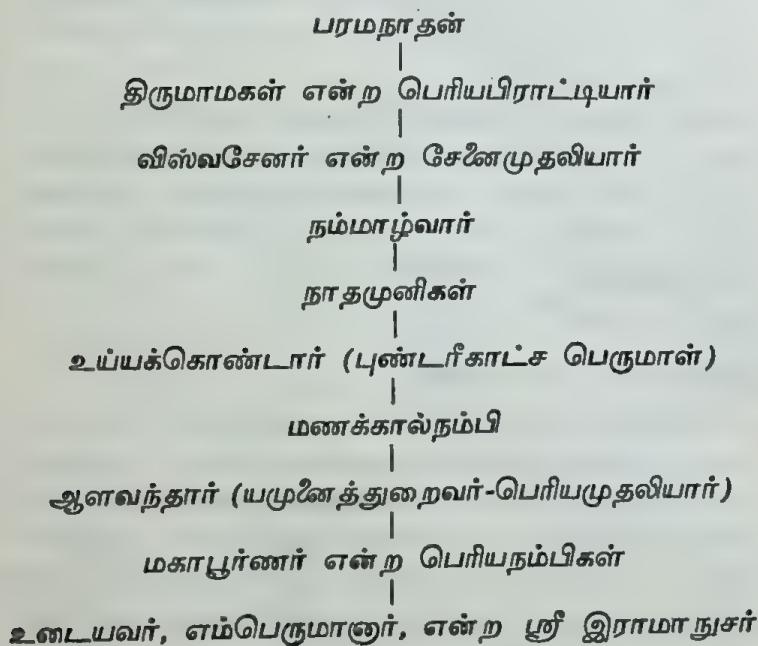 பரமநாதன்
திருமாமகள் என்ற பெரியபிராட்டியார்
விஸ்வசேனர் என்ற சேனைமுதலியார்
நம்மாழ்வார்
நாதமுனிகள்
உய்யக்கொண்டார் (புண்டரீகாட்ச பெருமாள்)
மணக்கால்நம்பி
ஆளவந்தார் (யமுனைத்துறைவர்-பெரியமுதலியார்)
மகாபூர்ணர் என்ற பெரியநம்பிகள்
உடையவர், எம்பெருமானார், என்ற ஸ்ரீ இராமாநுசர்